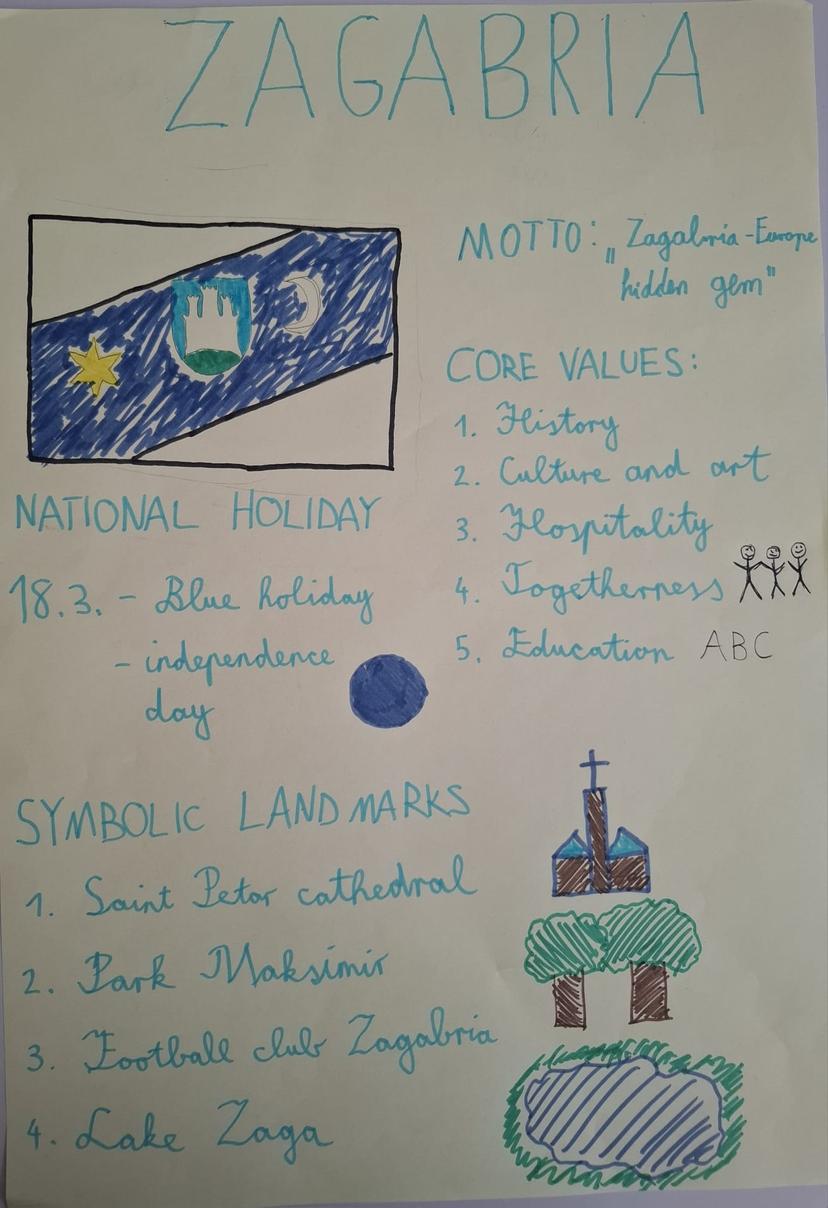 ZAGABRIA
MOTTO: „Zagabria-Europe
hidden gem"
CORE VALUES:
1. History
2. Culture and art
3. Hospitality
4. Togetherness
5. Education ABC
NATIONAL HOLIDAY
18.3. - Blue holiday
- independence
day
SYMBOLIC LANDMARKS
1. Saint Petar cathedral
2. Park Maksimir
3. Football club Zagabria
4. Lake Zaga